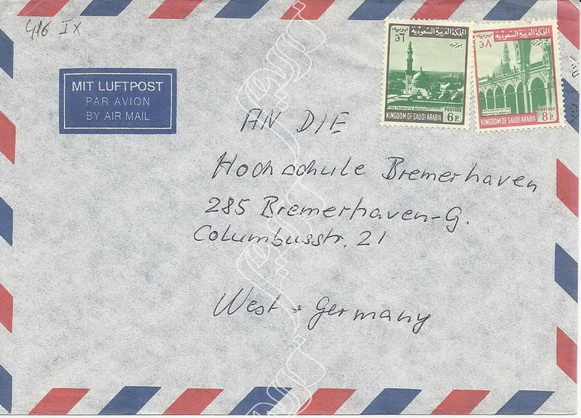 416 IX
MIT LUFTPOST
PAR AVION
BY AIR MAIL
المملكة العربية السعودية
POSTAGE
6 P.
KINGDOM OF SAUDI ARABIA
المملكة العربية السعودية
POSTAGE
8 P.
KINGDOM OF SAUDI ARABIA
AN DIE
Hochschule Bremerhaven
285 Bremerhaven-G.
Columbusstr. 21
West-Germany